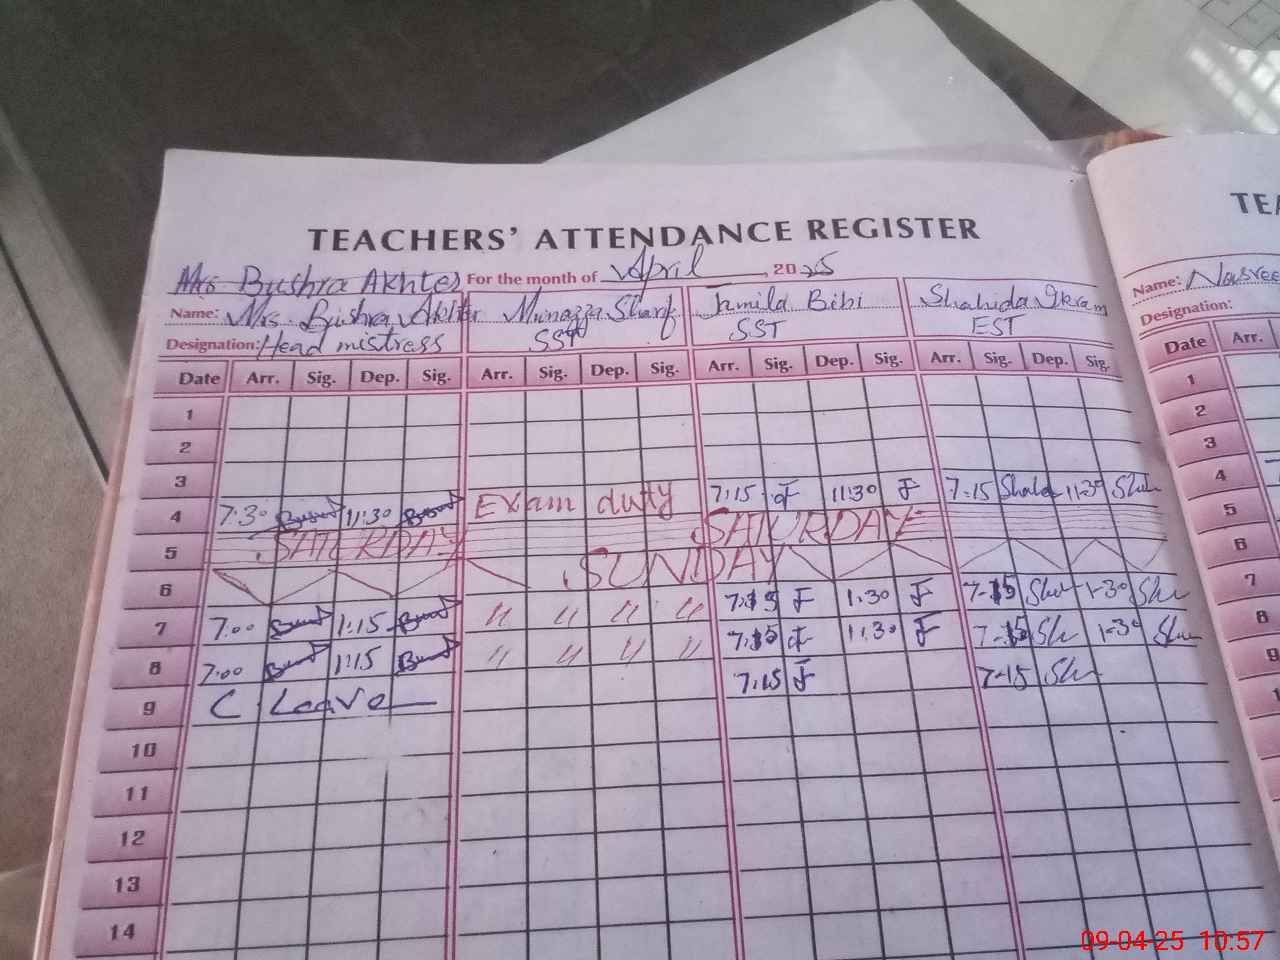 TEACHERS' ATTENDANCE REGISTER
Mrs Bushra Akhter For the month of April, 2025
Name: Mrs. Bushra Akhter Munazza Sharif Jamila Bibi Shahida Ikram
Designation: Head mistress SST SST EST
Date Arr. Sig. Dep. Sig. Arr. Sig. Dep. Sig. Arr. Sig. Dep. Sig. Arr. Sig. Dep. Sig.
1
2
3
4 7:30 11:30 Exam duty 7:15 11:30 7-15 11-30
5 SATURDAY SATURDAY
6 SUNDAY
7 7:00 1:15 " " " " 7:15 1:30 7-15 1-30
8 7:00 1:15 " " " " 7:15 11:30 7-15 1-30
9 C Leave 7:15 7-15
10
11
12
13
14
TEA
Name: Nasree
Designation:
Date Arr.
1
2
3
4
5
6
7
8
9
09-04-25 10:57